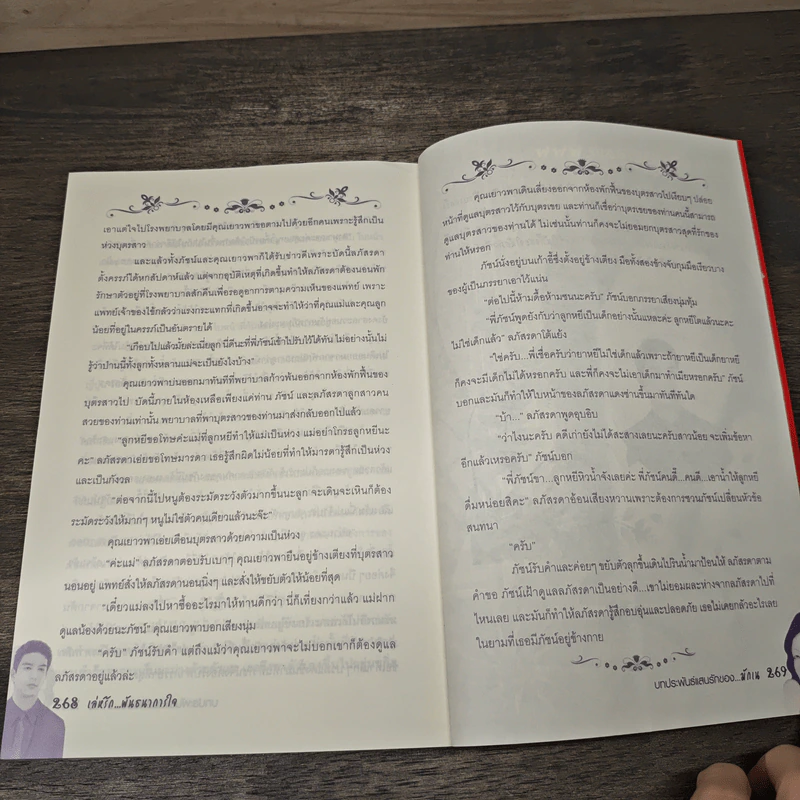 เอาแต่ใจไปโรงพยาบาลโดยมีคุณเยาวพาขอตามไปด้วยอีกคนเพราะรู้สึกเป็น
ห่วงบุตรสาว
และแล้วทั้งภัชน์และคุณเยาวพาก็ได้รับข่าวดีเพราะบัดนี้ลภัสรดา
ตั้งครรภ์ได้หกสัปดาห์แล้ว แต่จากอุบัติเหตุที่เกิดขึ้นทำให้ลภัสรดาต้องนอนพัก
รักษาตัวอยู่ที่โรงพยาบาลสักคืนเพื่อรอดูอาการตามความเห็นของแพทย์ เพราะ
แพทย์เจ้าของไข้กลัวว่าแรงกระแทกที่เกิดขึ้นอาจจะทำให้ว่าที่คุณแม่และคุณลูก
น้อยที่อยู่ในครรภ์เป็นอันตรายได้
“เกือบไปแล้วมั้ยล่ะเนี่ยลูก นี่ดีนะที่พี่ภัชน์เข้าไปรับไว้ได้ทัน ไม่อย่างนั้นไม่
รู้ว่าป่านนี้ทั้งลูกทั้งหลานแม่จะเป็นยังไงบ้าง”
คุณเยาวพาบ่นออกมาทันทีที่พยาบาลก้าวพ้นออกจากห้องพักฟื้นของ
บุตรสาวไป บัดนี้ภายในห้องเหลือเพียงแค่ท่าน ภัชน์ และลภัสรดาลูกสาวคน
สวยของท่านเท่านั้น พยาบาลที่พาบุตรสาวของท่านมาส่งกลับออกไปแล้ว
“ลูกหยีขอโทษค่ะแม่ที่ลูกหยีทำให้แม่เป็นห่วง แม่อย่าโกรธลูกหยีนะ
คะ” ลภัสรดาเอ่ยขอโทษมารดา เธอรู้สึกผิดไม่น้อยที่ทำให้มารดารู้สึกเป็นห่วง
และเป็นกังวล
“ต่อจากนี้ไปหนูต้องระมัดระวังตัวมากขึ้นนะลูก จะเดินจะเหินก็ต้อง
ระมัดระวังให้มากๆ หนูไม่ใช่ตัวคนเดียวแล้วนะจ๊ะ”
คุณเยาวพาเอ่ยเตือนบุตรสาวด้วยความเป็นห่วง
“ค่ะแม่” ลภัสรดาตอบรับเบาๆ คุณเยาวพายืนอยู่ข้างเตียงที่บุตรสาว
นอนอยู่ แพทย์สั่งให้ลภัสรดานอนนิ่งๆ และสั่งให้ขยับตัวให้น้อยที่สุด
“เดี๋ยวแม่ลงไปหาซื้ออะไรมาให้ทานดีกว่า นี่ก็เที่ยงกว่าแล้ว แม่ฝาก
ดูแลน้องด้วยนะภัชน์” คุณเยาวพาบอกเสียงนุ่ม
“ครับ” ภัชน์รับคำ แต่ถึงแม้ว่าคุณเยาวพาจะไม่บอกเขาก็ต้องดูแล
ลภัสรดาอยู่แล้วล่ะ
268 เล่ห์รัก...พันธนาการใจ
คุณเยาวพาเดินเลี่ยงออกจากห้องพักฟื้นของบุตรสาวไปเงียบๆ ปล่อย
หน้าที่ดูแลบุตรสาวไว้กับบุตรเขย และท่านก็เชื่อว่าบุตรเขยของท่านคนนี้สามารถ
ดูแลบุตรสาวของท่านได้ ไม่เช่นนั้นท่านก็คงจะไม่ยอมยกบุตรสาวสุดที่รักของ
ท่านให้หรอก
ภัชน์นั่งอยู่บนเก้าอี้ซึ่งตั้งอยู่ข้างเตียง มือทั้งสองข้างจับกุมมือเรียวบาง
ของผู้เป็นภรรยาเอาไว้แน่น
“ต่อไปนี้ห้ามดื้อห้ามซนนะครับ” ภัชน์บอกภรรยาเสียงนุ่มทุ้ม
“พี่ภัชน์พูดยังกับว่าลูกหยีเป็นเด็กอย่างนั้นแหละค่ะ ลูกหยีโตแล้วนะคะ
ไม่ใช่เด็กแล้ว” ลภัสรดาโต้แย้ง
“ใช่ครับ...พี่เชื่อครับว่ายาหยีไม่ใช่เด็กแล้วเพราะถ้ายาหยีเป็นเด็กยาหยี
ก็คงจะมีเด็กไม่ได้หรอกครับ และพี่ก็คงจะไม่เอาเด็กมาทำเมียหรอกครับ” ภัชน์
บอกและมันก็ทำให้ใบหน้าของลภัสรดาแดงซ่านขึ้นมาทันทีทันใด
“บ้า...” ลภัสรดาพูดอุบอิบ
“ว่าไงนะครับ คดีเก่ายังไม่ได้สะสางเลยนะครับสาวน้อย จะเพิ่มข้อหา
อีกแล้วเหรอครับ” ภัชน์บอก
“พี่ภัชน์ขา...ลูกหยีหิวน้ำจังเลยค่ะ พี่ภัชน์คนดี๊...คนดี...เอาน้ำให้ลูกหยี
ดื่มหน่อยสิคะ” ลภัสรดาอ้อนเสียงหวานเพราะต้องการชวนภัชน์เปลี่ยนหัวข้อ
สนทนา
“ครับ”
ภัชน์รับคำและค่อยๆ ขยับตัวลุกขึ้นเดินไปรินน้ำมาป้อนให้ ลภัสรดาตาม
คำขอ ภัชน์เฝ้าดูแลลภัสรดาเป็นอย่างดี...เขาไม่ยอมผละห่างจากลภัสรดาไปที่
ไหนเลย และมันก็ทำให้ลภัสรดารู้สึกอบอุ่นและปลอดภัย เธอไม่เคยกลัวอะไรเลย
ในยามที่เธอมีภัชน์อยู่ข้างกาย
บทประพันธ์แสนรักของ... มักเน 269